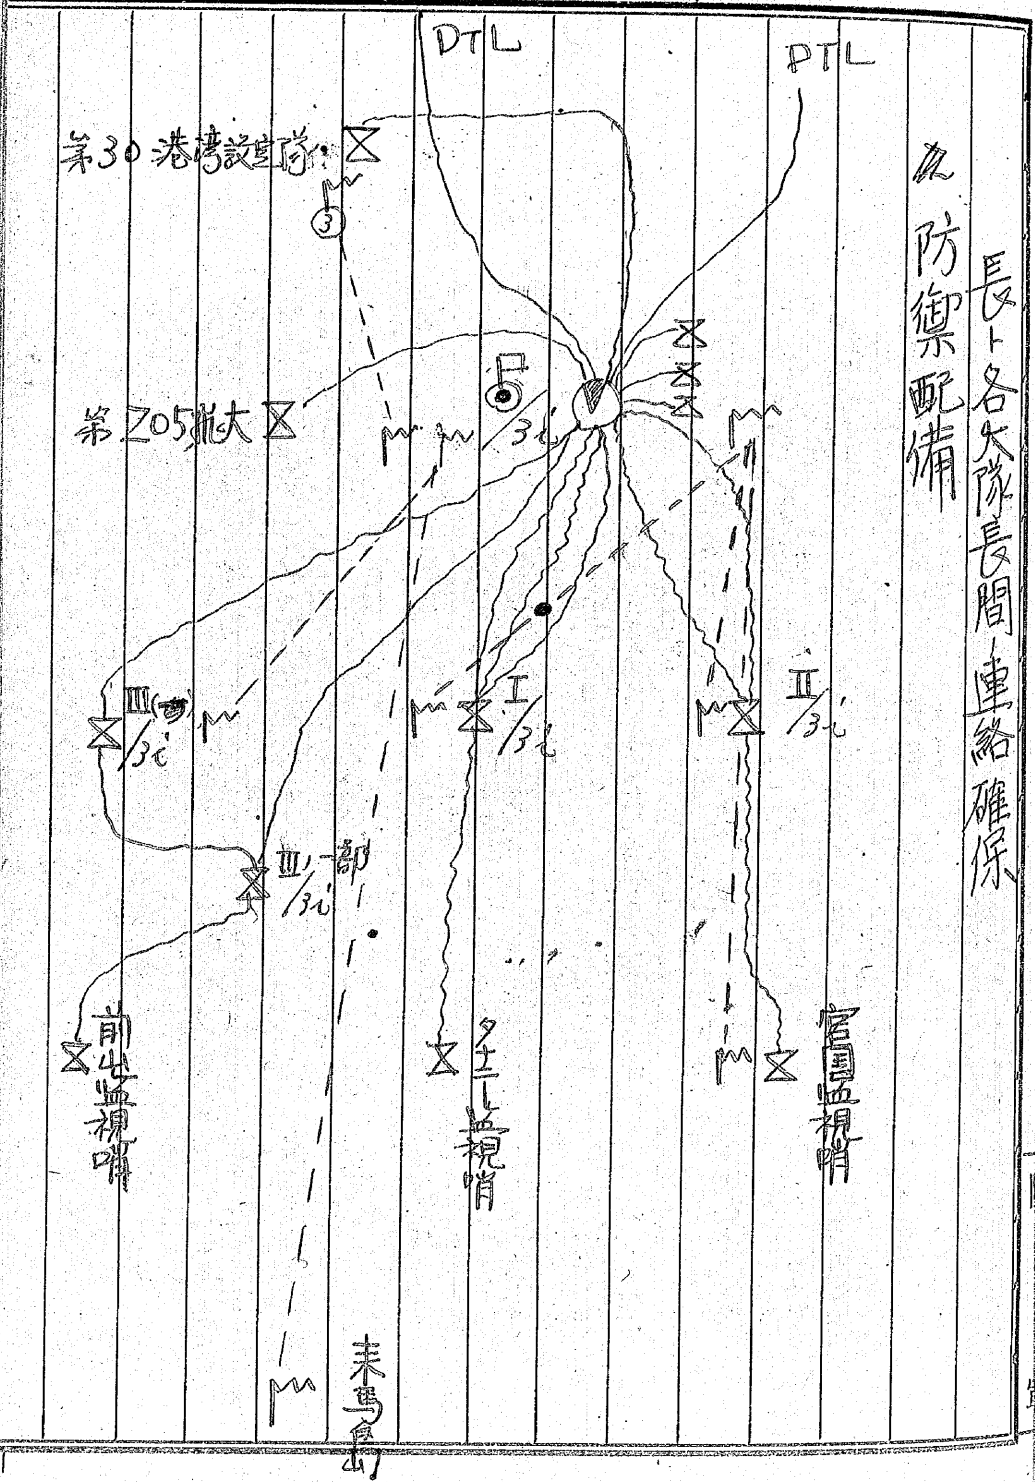 長ト各大隊長間ノ連絡確保
防禦配備
DTL
DTL
第30港湾設定隊
③
第205飛大
3i
II/3i
I/3i
III
/3i
III,一部
/3i
官国監視哨
監視哨
前山監視哨
来馬島